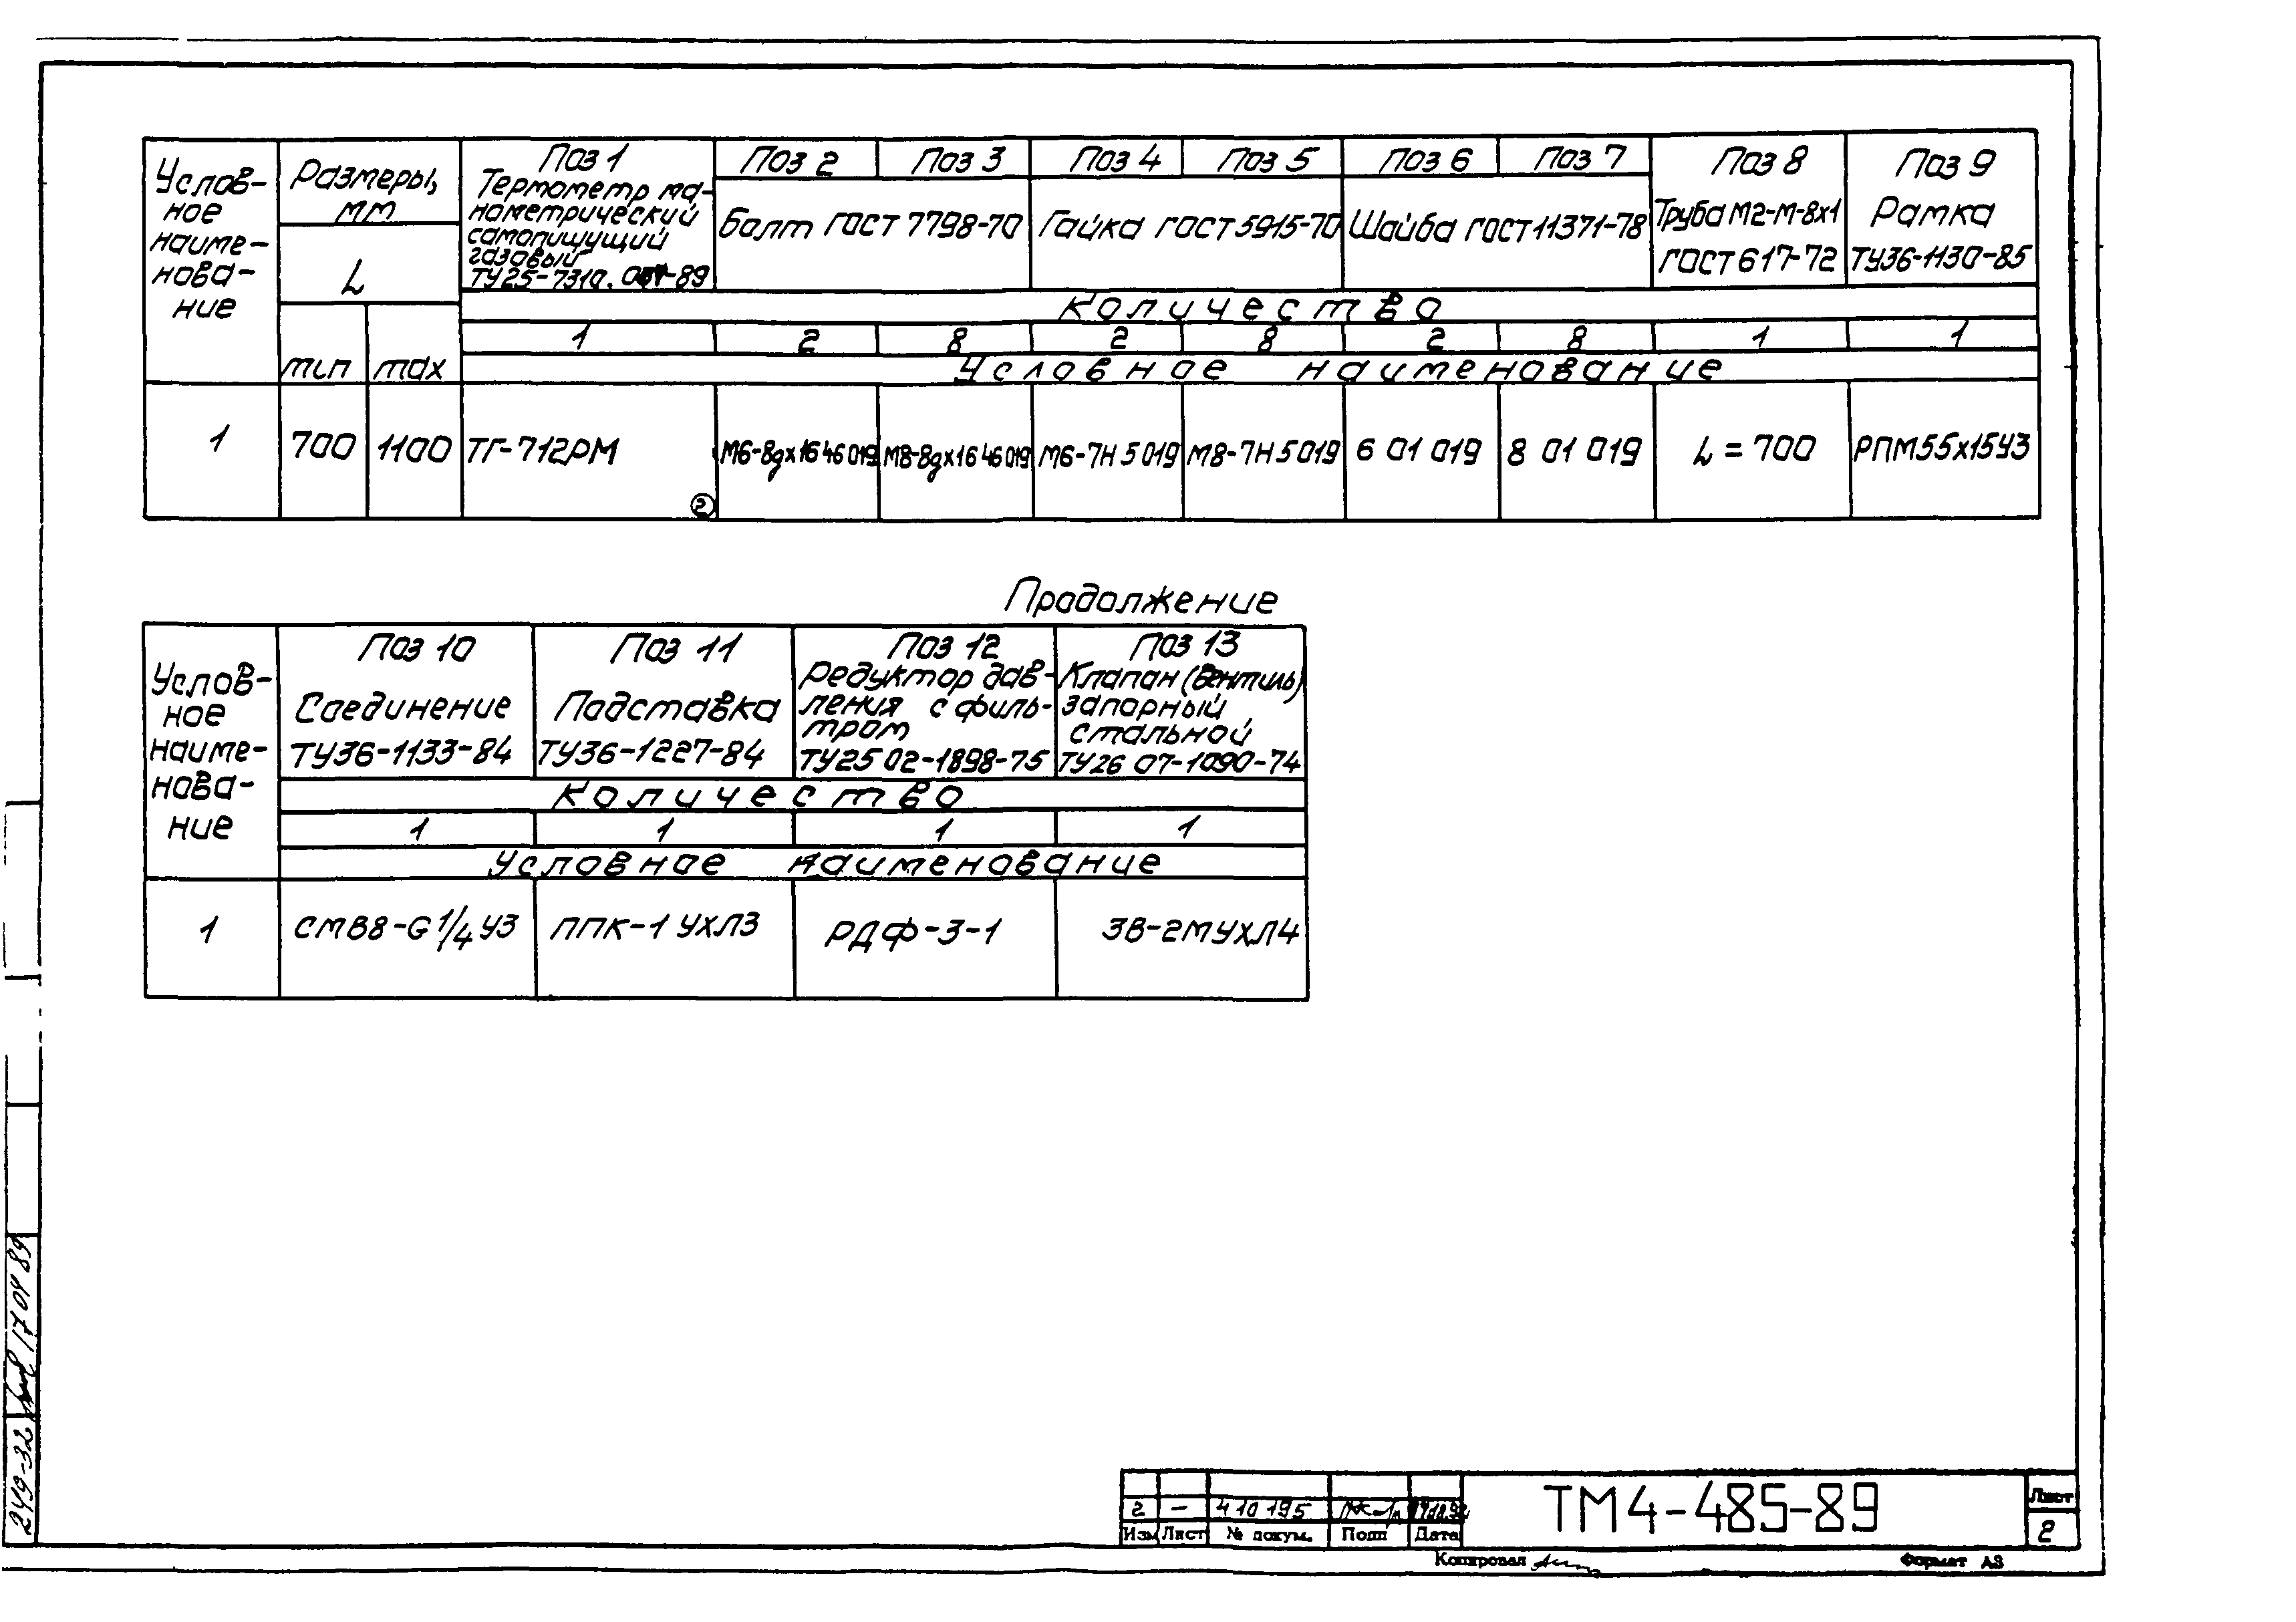 Услов-
ное
наиме-
нова-
ние
Размеры,
мм
L
min max
Поз 1
Термометр ма-
нометрический
самопишущий
газовый
ТУ25-7310. -89
Поз 2 Поз 3
Болт ГОСТ 7798-70
Поз 4 Поз 5
Гайка ГОСТ 5915-70
Поз 6 Поз 7
Шайба ГОСТ 11371-78
Поз 8
Труба М2-М-8х1
ГОСТ 617-72
Поз 9
Рамка
ТУ36-1130-85
Количество
1 2 8 2 8 2 8 1 1
Условное наименование
1 700 1100 ТГ-712РМ М6-8gх16 46 019 М8-8gх16 46 019 М6-7Н 5 019 М8-7Н 5 019 6 01 019 8 01 019 L = 700 РПМ55х15У3
2
Продолжение
Услов-
ное
наиме-
нова-
ние
Поз 10
Соединение
ТУ36-1133-84
Поз 11
Подставка
ТУ36-1227-84
Поз 12
Редуктор дав-
ления с филь-
тром
ТУ25 02-1898-75
Поз 13
Клапан (вентиль)
запорный
стальной
ТУ26 07-1090-74
Количество
1 1 1 1
Условное наименование
1 СМВ8-G 1/4 У3 ППК-1 УХЛ3 РДФ-3-1 ЗВ-2М УХЛ4
249-32 17 04 89
2 - 4 10 195
Изм Лист № докум. Подп Дата
ТМ4-485-89
Лист
2
Копировал
Формат А3